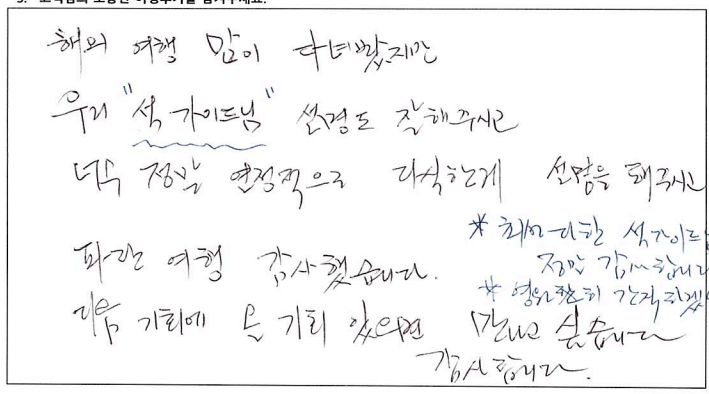 해외 여행 많이 다녀봤지만
우리 "석 가이드님" 설명도 잘해주시고
너무 정말 열정적으로 다식한게 설명을 해주시고
파란 여행 감사했습니다.
다음 기회에 또 기회 있으면 만나고 싶습니다
감사합니다.
* 최고 다한 석가이드
정말 감사합니다
* 영원히 간직하겠